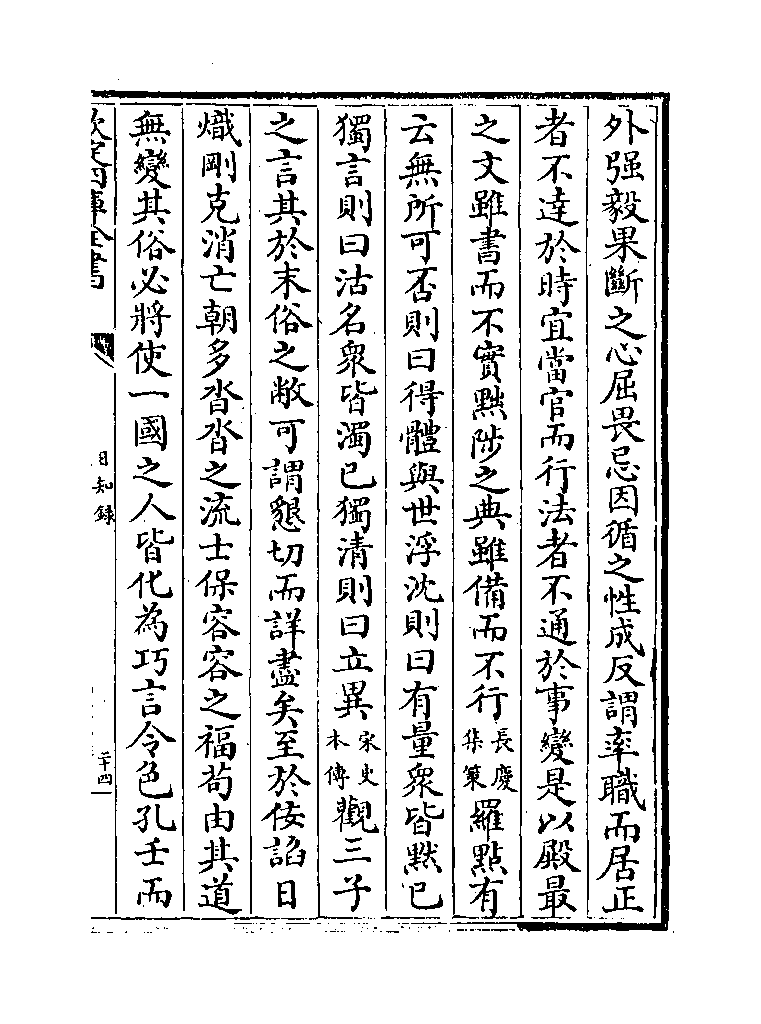 外强毅果斷之心屈畏忌因循之性成反謂率職而居正
者不達於時宜當官而行法者不通於事變是以殿最
之文雖書而不實黜陟之典雖備而不行長慶集策羅點有
云無所可否則曰得體與世浮沈則曰有量衆皆黙已
獨言則曰沽名衆皆濁已獨清則曰立異宋史本傳觀三子
之言其於末俗之敝可謂懇切而詳盡矣至於佞諂日
熾剛克消亡朝多沓沓之流士保容容之福茍由其道
無變其俗必將使一國之人皆化為巧言令色孔壬而
欽定四庫全書
日知錄
二十四